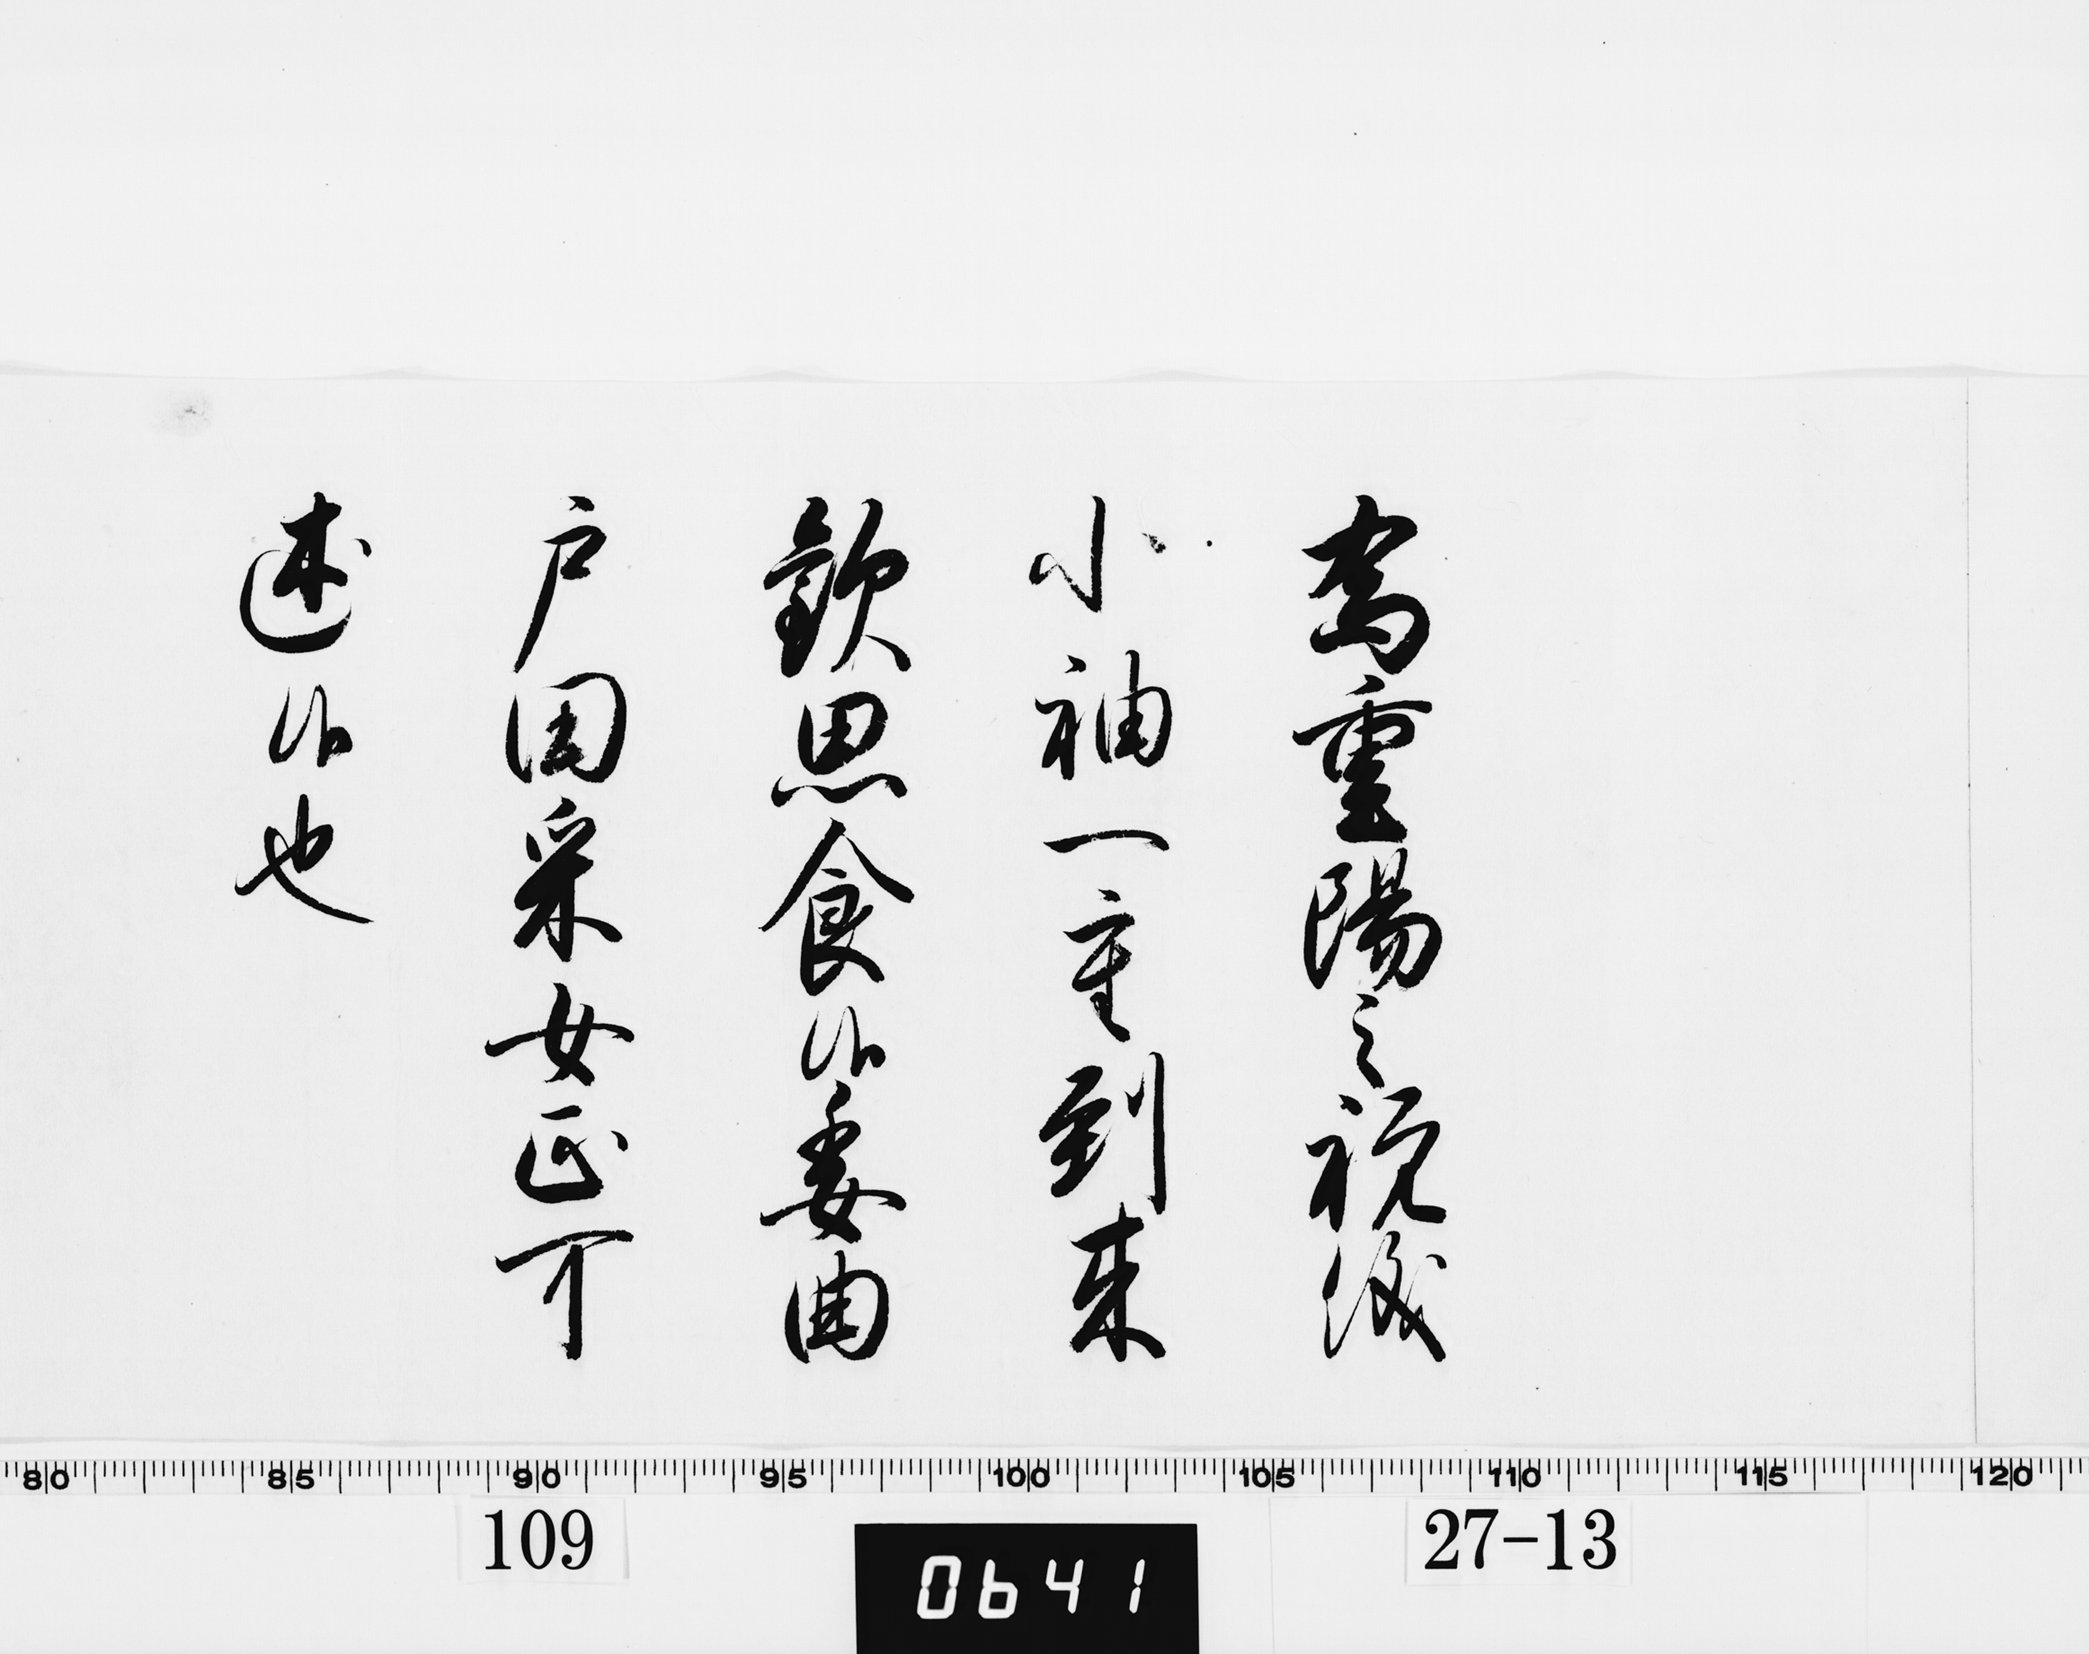 為重陽之祝儀
小袖一重到来
歓思食候委曲
戸田采女正可
述候也
80 85 90 95 100 105 110 115 120
109
0641
27-13